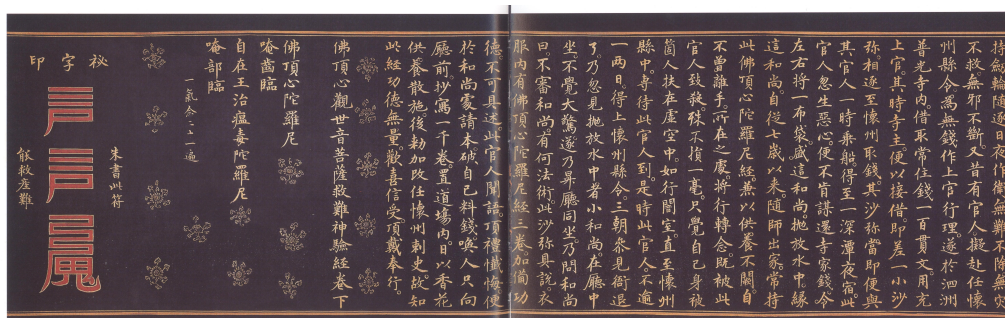 州縣令為無錢作上官行理遂於泗洲
普光寺內借取常住錢一百貫文用充
上官其時寺主便以接借即差一小沙
弥相逐至懷州取錢其沙弥當即便與
其官人一時乘船得至一深潭夜宿此
官人忽生惡心便不肯謀還寺家錢令
左右將一布袋盛這和尚拋放水中緣
這和尚自從七歲以來隨師出家常持
此佛頂心陀羅尼經兼以供養不闕自
不曾離手所在之處將行轉念既被此
官人致殺殊不損一毫只覺自己身被
箇人扶在虛空中如行闇室直至懷州
縣中專待此官人到是時此官人不逾
一兩日得上懷州縣令三朝叅見衙退
了乃忽見拋放水中者小和尚在廳中
坐不覺大驚遂乃昇廳同坐乃問和尚
曰不審和尚有何法術此沙弥具說衣
服內有佛頂心陀羅尼經三卷加備功
德不可具述此官人聞語頂禮懺悔便
於和尚處請本破自己料錢喚人只向
廳前抄寫一千卷置道場內日以香花
供養散施後勑加改任懷州刺史故知
此經功德無量歡喜信受頂戴奉行
佛頂心觀世音菩薩救難神驗經卷下
佛頂心陀羅尼
唵齒臨
自在王治瘟毒陀羅尼
唵部臨
一氣念二十一遍
朱書此符
能救產難
祕字印